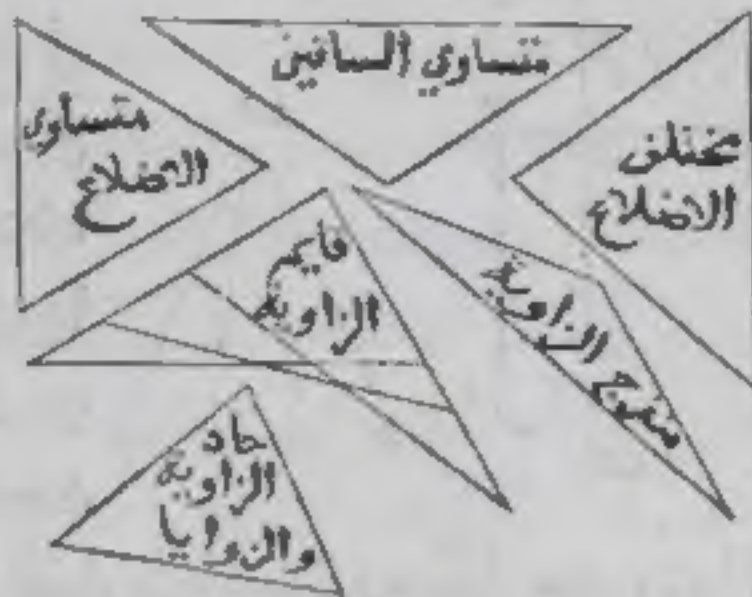 متساوي الساقين
متساوي
الاضلاع
مختلف
الاضلاع
قايم
الزاوية
منفرج الزاوية
حاد
الزاوية
والزوايا